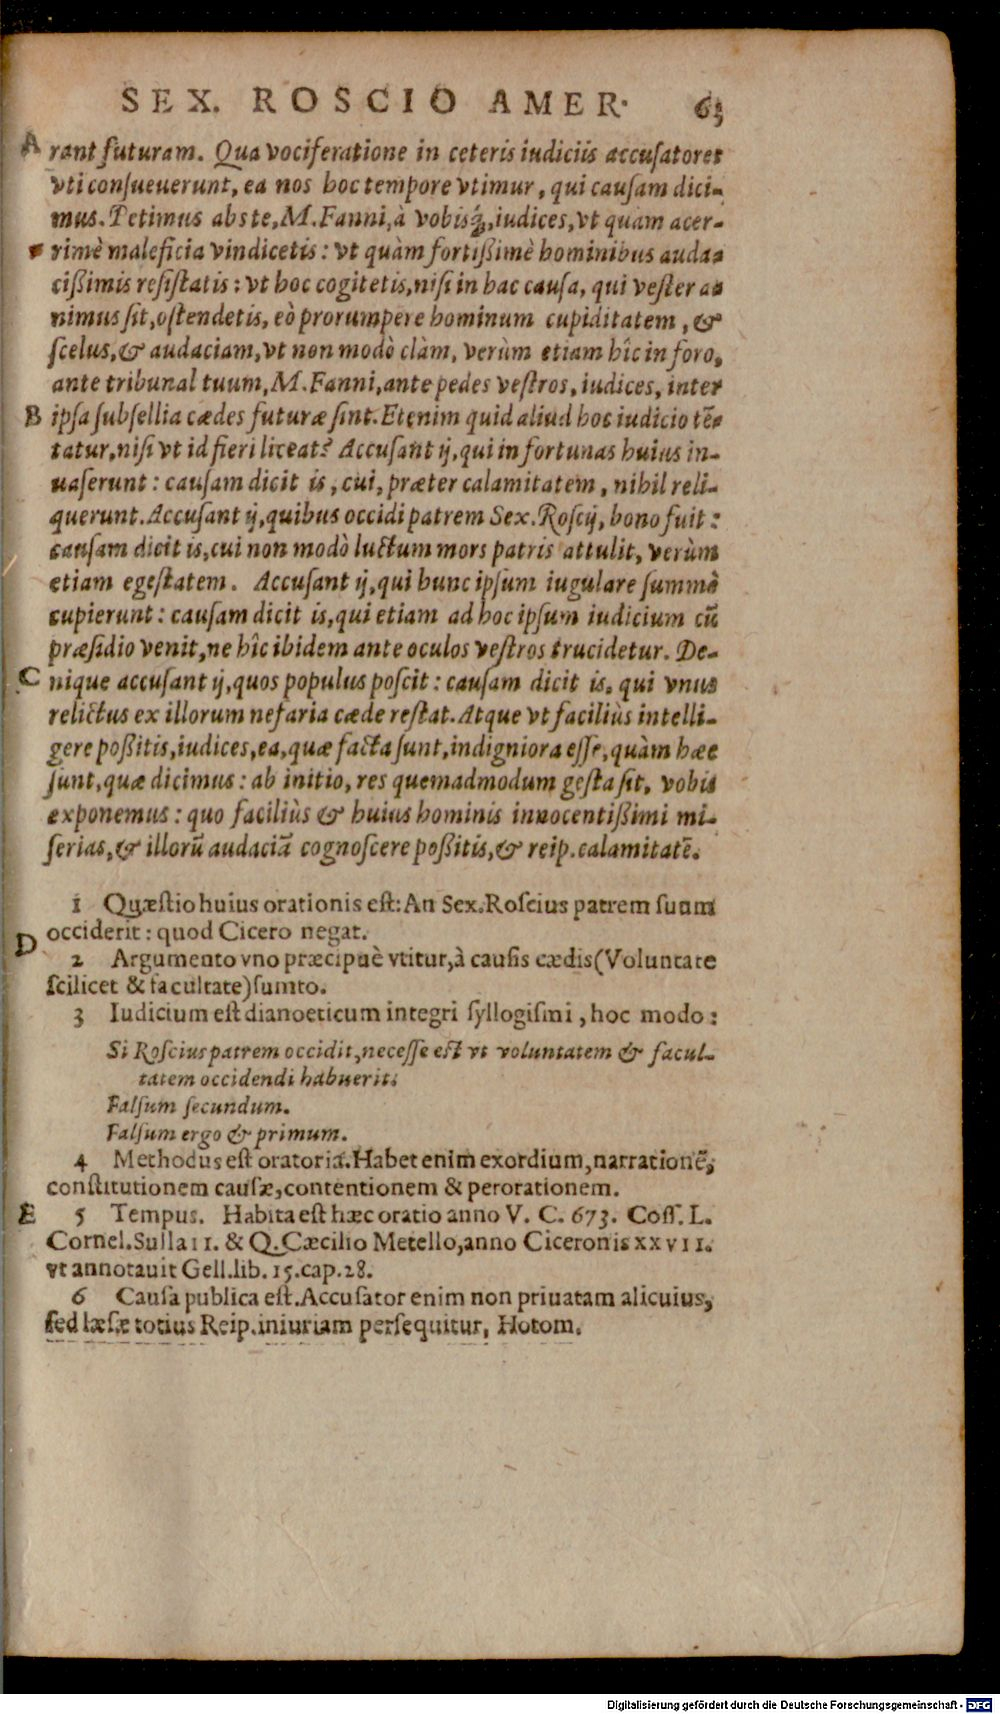 SEX. ROSCIO AMER. 63
A rant futuram. Qua vociferatione in ceteris iudiciis accusatores
vti consueuerunt, ea nos hoc tempore vtimur, qui causam dici-
mus. Petimus abs te, M. Fanni, à vobisq́;, iudices, vt quàm acer-
rimè maleficia vindicetis: vt quàm fortißimè hominibus auda-
cißimis resistatis: vt hoc cogitetis, nisi in hac causa, qui vester a-
nimus sit, ostendetis, eò prorumpere hominum cupiditatem, &
scelus, & audaciam, vt non modò clàm, verùm etiam hîc in foro,
ante tribunal tuum, M. Fanni, ante pedes vestros, iudices, inter
B ipsa subsellia cædes futuræ sint. Etenim quid aliud hoc iudicio tē-
tatur, nisi vt id fieri liceat? Accusant ij, qui in fortunas huius in-
uaserunt: causam dicit is, cui, præter calamitatem, nihil reli-
querunt. Accusant ij, quibus occidi patrem Sex. Roscij, bono fuit:
causam dicit is, cui non modò luctum mors patris attulit, verùm
etiam egestatem. Accusant ij, qui hunc ipsum iugulare summè
cupierunt: causam dicit is, qui etiam ad hoc ipsum iudicium cū
præsidio venit, ne hîc ibidem ante oculos vestros trucidetur. De-
C nique accusant ij, quos populus poscit: causam dicit is, qui vnus
relictus ex illorum nefaria cæde restat. Atque vt faciliùs intelli-
gere poßitis, iudices, ea, quæ facta sunt, indigniora esse, quàm hæc
sunt, quæ dicimus: ab initio, res quemadmodum gesta sit, vobis
exponemus: quo faciliùs & huius hominis innocentißimi mi-
serias, & illorū audaciā cognoscere poßitis, & reip. calamitatē.
1 Quæstio huius orationis est: An Sex. Roscius patrem suum
D occiderit: quod Cicero negat.
2 Argumento vno præcipuè vtitur, à causis cædis (Voluntate
scilicet & facultate) sumto.
3 Iudicium est dianoeticum integri syllogismi, hoc modo:
Si Roscius patrem occidit, necesse est vt voluntatem & facul-
tatem occidendi habuerit.
Falsum secundum.
Falsum ergo & primum.
4 Methodus est oratoria. Habet enim exordium, narrationē,
constitutionem causæ, contentionem & perorationem.
E 5 Tempus. Habita est hæc oratio anno V. C. 673. Coss. L.
Cornel. Sulla II. & Q. Cæcilio Metello, anno Ciceronis XXVII.
vt annotauit Gell. lib. 15. cap. 28.
6 Causa publica est. Accusator enim non priuatam alicuius,
sed læsæ totius Reip. iniuriam persequitur, Hotom.
Digitalisierung gefördert durch die Deutsche Forschungsgemeinschaft - DFG